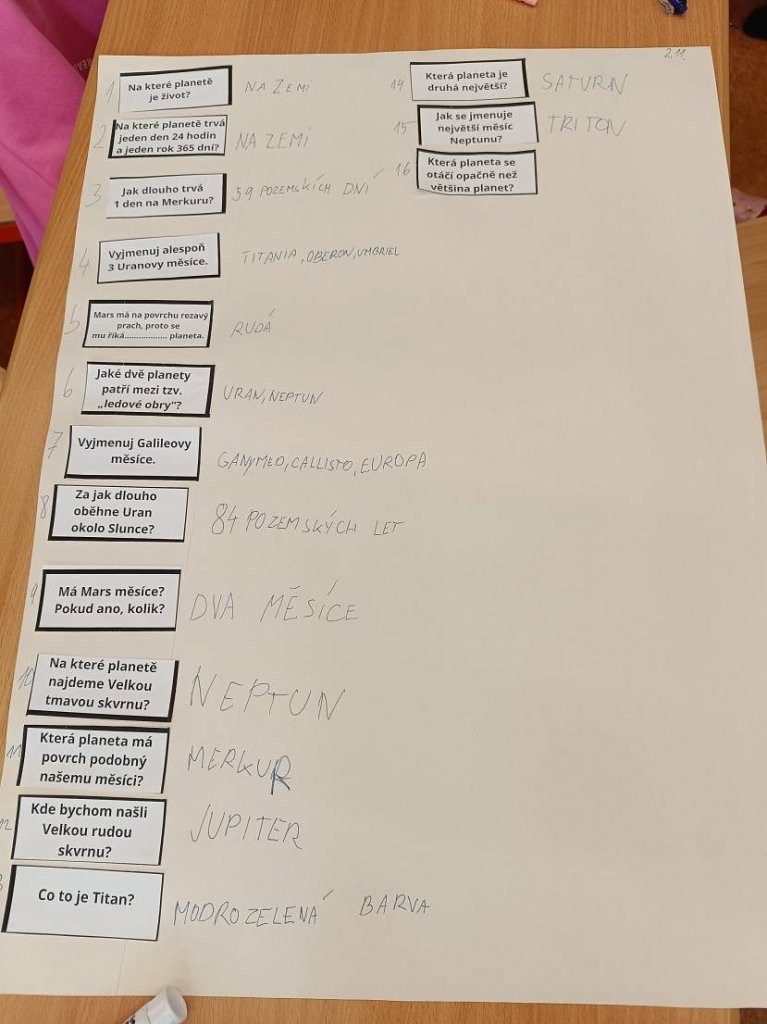 2.11.
1 Na které planetě
je život?
NA ZEMI
2 Na které planetě trvá
jeden den 24 hodin
a jeden rok 365 dní?
NA ZEMI
3 Jak dlouho trvá
1 den na Merkuru?
59 POZEMSKÝCH DNÍ
4 Vyjmenuj alespoň
3 Uranovy měsíce.
TITANIA, OBERON, UMBRIEL
5 Mars má na povrchu rezavý
prach, proto se
mu říká.................. planeta.
RUDÁ
6 Jaké dvě planety
patří mezi tzv.
„ledové obry"?
URAN, NEPTUN
7 Vyjmenuj Galileovy
měsíce.
GANYMED, CALLISTO, EUROPA
8 Za jak dlouho
oběhne Uran
okolo Slunce?
84 POZEMSKÝCH LET
9 Má Mars měsíce?
Pokud ano, kolik?
DVA MĚSÍCE
10 Na které planetě
najdeme Velkou
tmavou skvrnu?
NEPTUN
11 Která planeta má
povrch podobný
našemu měsíci?
MERKUR
12 Kde bychom našli
Velkou rudou
skvrnu?
JUPITER
3 Co to je Titan?
MODROZELENÁ BARVA
14 Která planeta je
druhá největší?
SATURN
15 Jak se jmenuje
největší měsíc
Neptunu?
TRITON
16 Která planeta se
otáčí opačně než
většina planet?